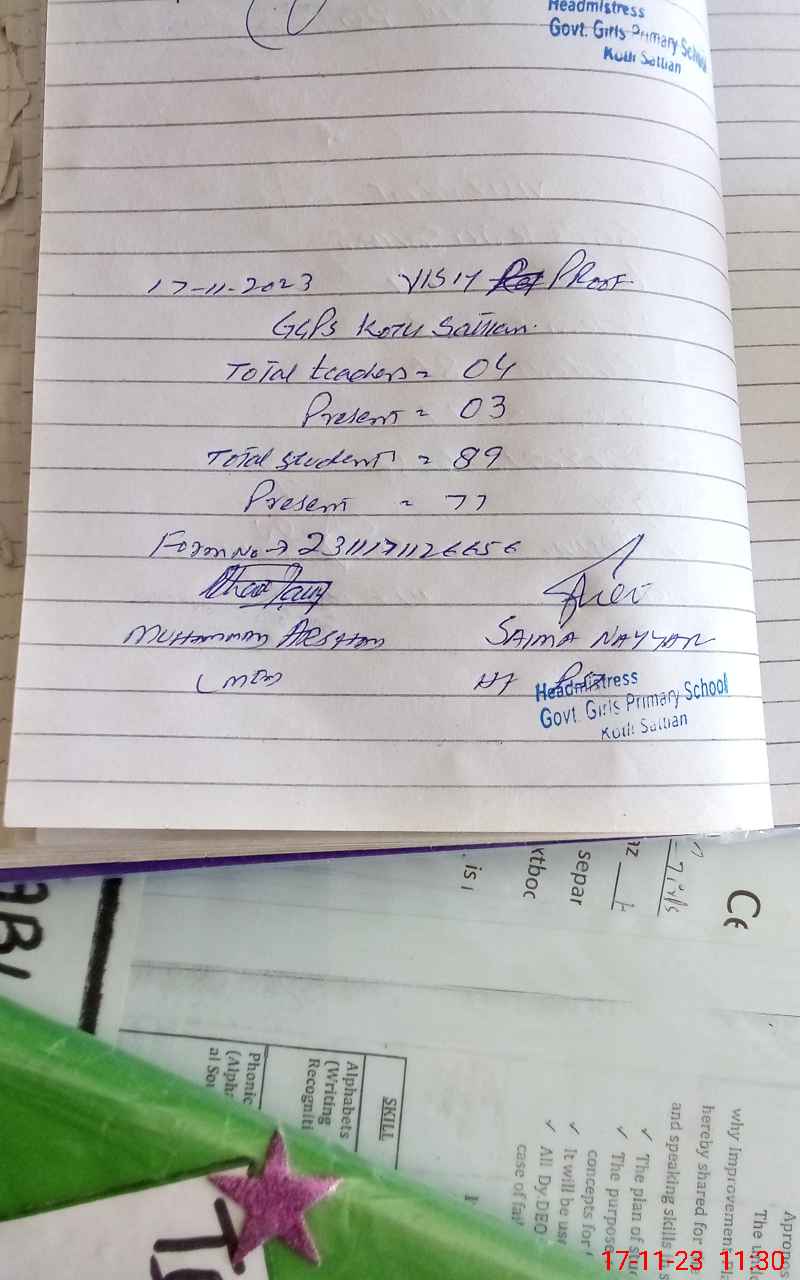 Headmistress
Govt. Girls Primary School
Kotli Sattian
17-11-2023 VISIT PROOF
GGPS Kotli Sattian.
Total teachers = 04
Present = 03
Total students = 89
Present = 77
Form No → 2311171126656
MUHAMMAD ARSHAD
SAIMA NAYYAR
Headmistress
Govt. Girls Primary School
Kotli Sattian
is
xtboc
separ
Girls
Ce
SKILL
Alphabets
(Writing
Recogniti
Phonic
(Alpha
al Sou
Apropos
The
why Improvemen
hereby shared for
and speaking skills
✓ The plan of
✓ The purpose
concepts for
✓ It will be use
✓ All Dy DEO
case of fai
17-11-23 11:30